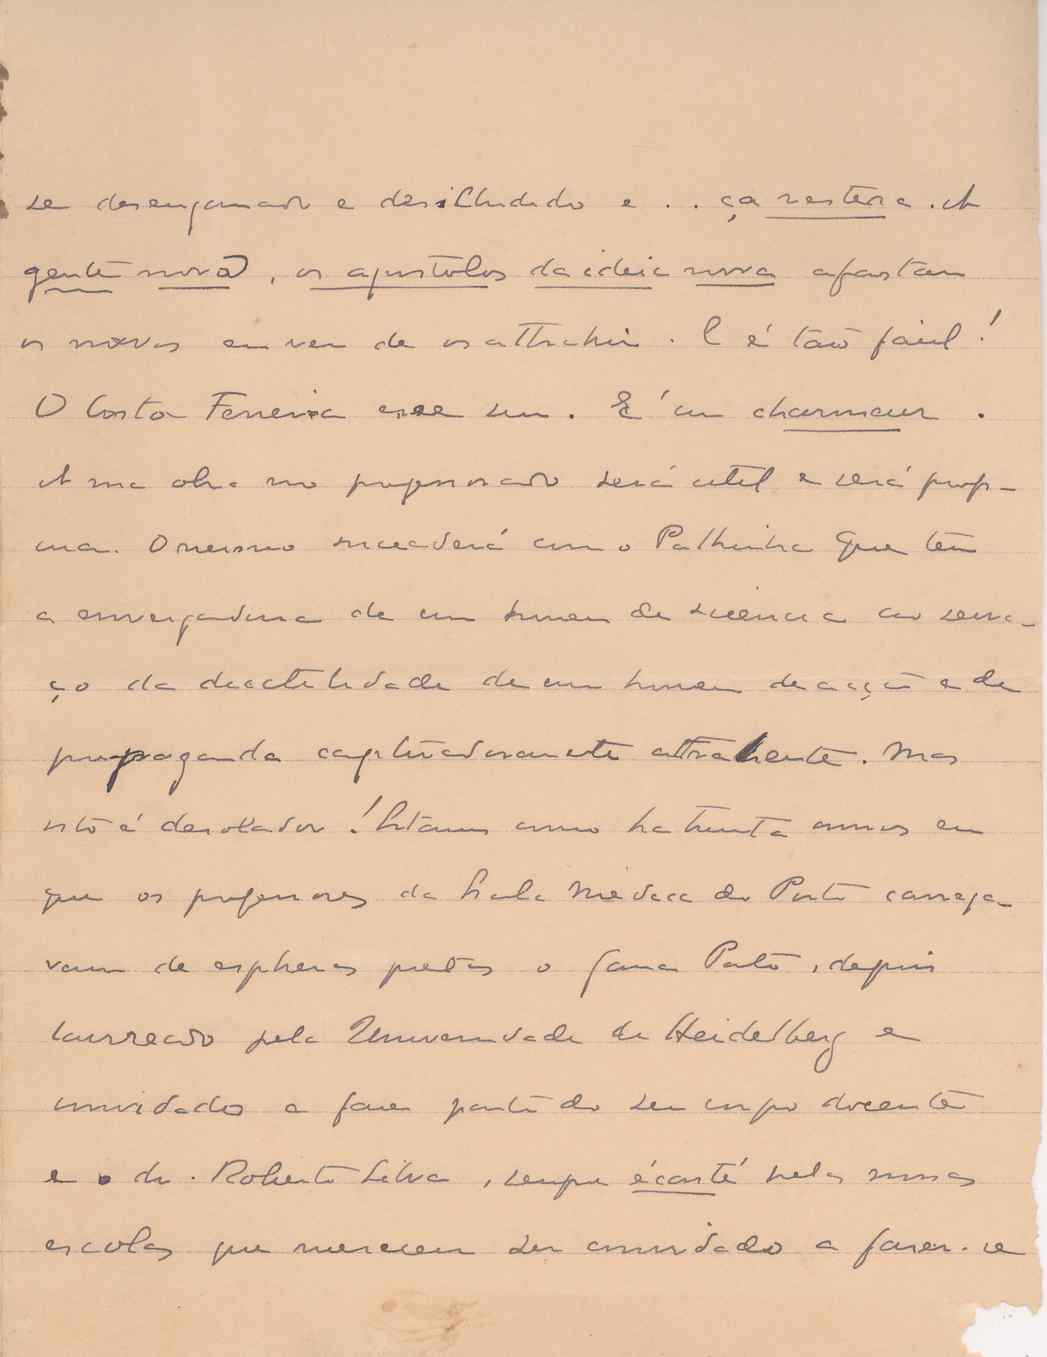 se desenganado e desilludido e . . ça restera. A
gente nova, os apostolos da ideia nova afastam
os novos em vez de os attrahir. E é tão fácil!
O Costa Ferreira esse sim. É um charmeur.
A sua obra no professorado será util e será prof-
icua. O mesmo succederá com o Palhinha que tem
a envergadura de um homem de sciencia ao servi-
ço da ductilidade de um homem de acção e de
propaganda captivadoramente attrahente. Mas
isto é desolador! Estamos como ha trinta annos em
que os professores da Escola Médica do Porto carrega-
vam de espheras pretas o Gama Pinto, depois
laureado pela Universidade de Heidelberg e
convidado a fazer parte do seu corpo docente
e o dr. Roberto Silva, sempre écarté pelas nossas
escolas que mereceu ser convidado a fazer-se